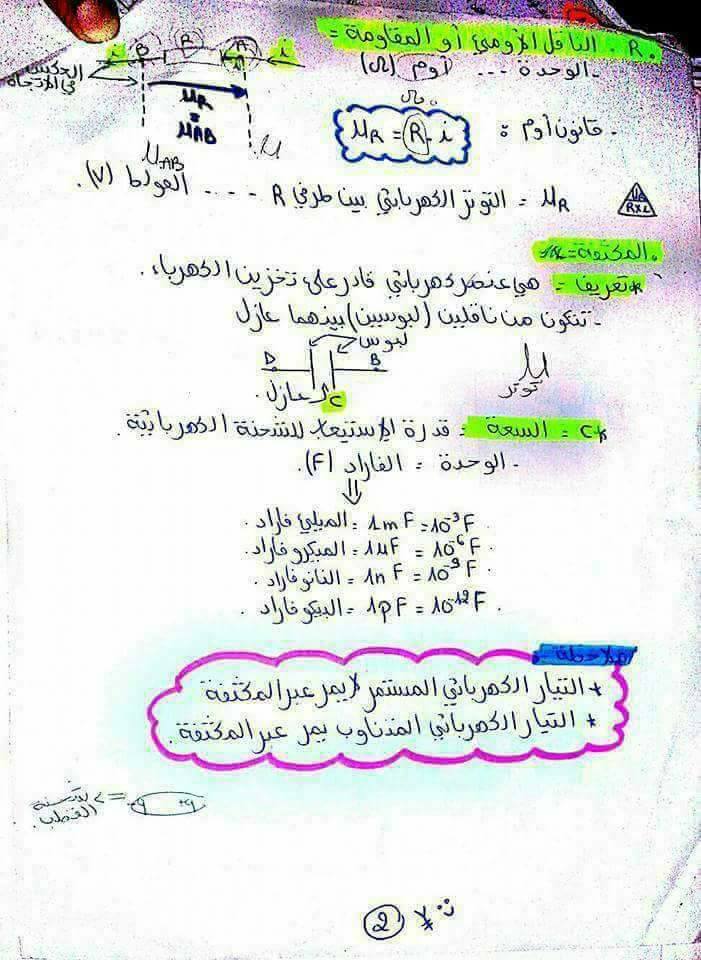 R. الناقل الأومي أو المقاومة =
- الوحدة --- أوم (Ω)
i B R A i
العكس في الاتجاه
u_R = u_AB
U_AB
- قانون أوم :
Ω
u_R = R . i
u_R = التوتر الكهربائي بين طرفي R - - - - الفولط (V).
المكثفة =
* تعريف = هي عنصر كهربائي قادر على تخزين الكهرباء.
- تتكون من ناقلين (لبوسين) بينهما عازل
لبوس
B
عازل.
C
U
توتر
* C = السعة = قدرة الإستيعاب للشحنة الكهربائية.
- الوحدة = الفاراد (F).
⇓
الميلي فاراد = 1mF = 10⁻³F.
الميكرو فاراد = 1µF = 10⁻⁶F.
النانو فاراد = 1nF = 10⁻⁹F.
البيكو فاراد = 1pF = 10⁻¹²F.
ملاحظة
* التيار الكهربائي المستمر لا يمر عبر المكثفة
* التيار الكهربائي المتناوب يمر عبر المكثفة.
2